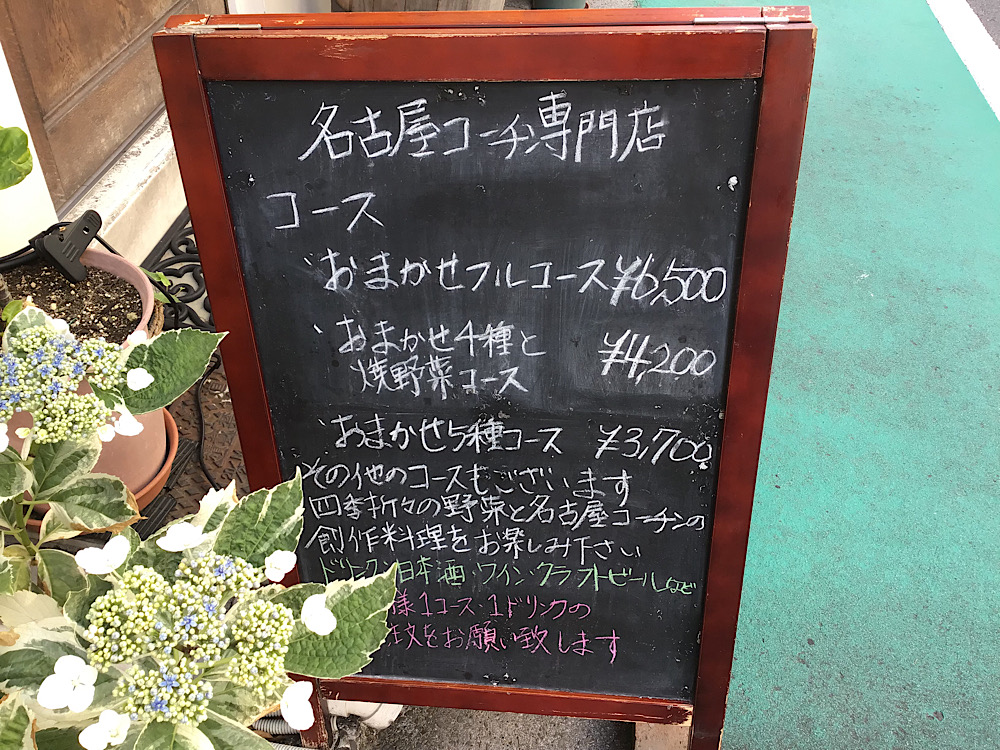 名古屋コーチン専門店
コース
・おまかせフルコース ¥6,500
・おまかせ4種と ¥4,200
焼野菜コース
・おまかせ5種コース ¥3,700
その他のコースもございます
四季折々の野菜と名古屋コーチンの
創作料理をお楽しみ下さい
ドリンク:日本酒・ワイン・クラフトビールなど
様1コース・1ドリンクの
注文をお願い致します